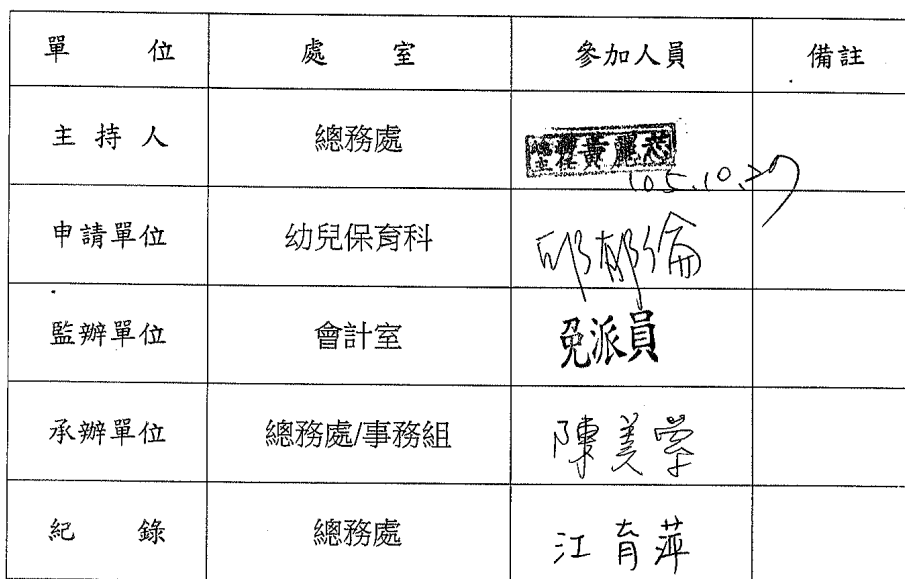 單　　位　處　　室　參加人員　備註
主 持 人　總務處　總務主任黃麗蕊
105.10.27
申請單位　幼兒保育科　邱郁倫
監辦單位　會計室　免派員
承辦單位　總務處/事務組　陳美
紀　　錄　總務處　江育萍